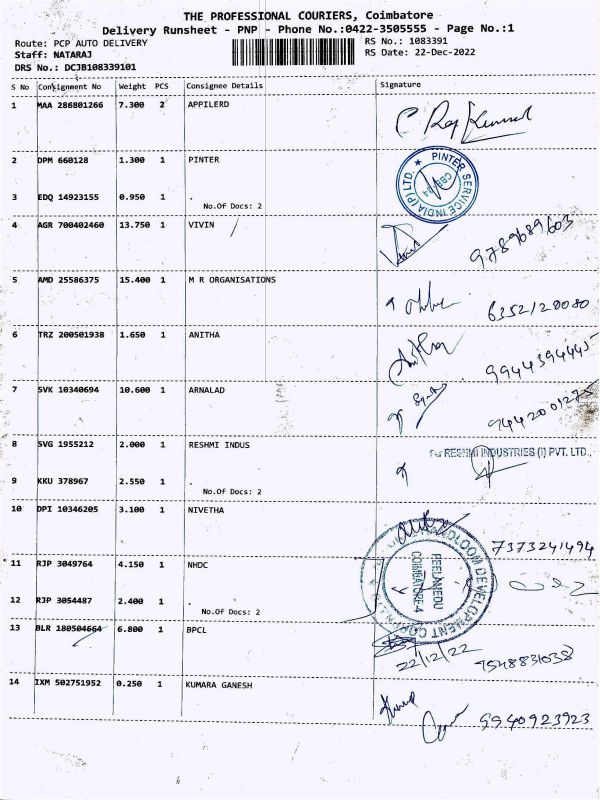 THE PROFESSIONAL COURIERS, Coimbatore
Delivery Runsheet - PNP - Phone No.:0422-3505555 - Page No.:1
Route: PCP AUTO DELIVERY
RS No.: 1083391
Staff: NATARAJ
RS Date: 22-Dec-2022
DRS No.: DCJB108339101
S No Consignment No Weight PCS Consignee Details Signature
1 MAA 286801266 7.300 2 APPILERD
C Raj Kumar
2 DPM 660128 1.300 1 PINTER
★ PINTER SERVICE INDIA (P) LTD.
CBE
3 EDQ 14923155 0.950 1 .
No.Of Docs: 2
4 AGR 700402460 13.750 1 VIVIN
9789689603
5 AMD 25586375 15.400 1 M R ORGANISATIONS
6352120080
6 TRZ 200501938 1.650 1 ANITHA
9944394445
7 SVK 10340694 10.600 1 ARNALAD
8 SVG 1955212 2.000 1 RESHMI INDUS
For RESHMI INDUSTRIES (I) PVT. LTD.,
9 KKU 378967 2.550 1 .
No.Of Docs: 2
10 DPI 10346205 3.100 1 NIVETHA
7373241494
11 RJP 3049764 4.150 1 NHDC
HANDLOOM DEVELOPMENT CORPN.
PEELAMEDU
COIMBATORE-4
12 RJP 3054487 2.400 1 .
No.Of Docs: 2
13 BLR 180504664 6.800 1 BPCL
22/12/22
14 IXM 502751952 0.250 1 KUMARA GANESH
9940923923